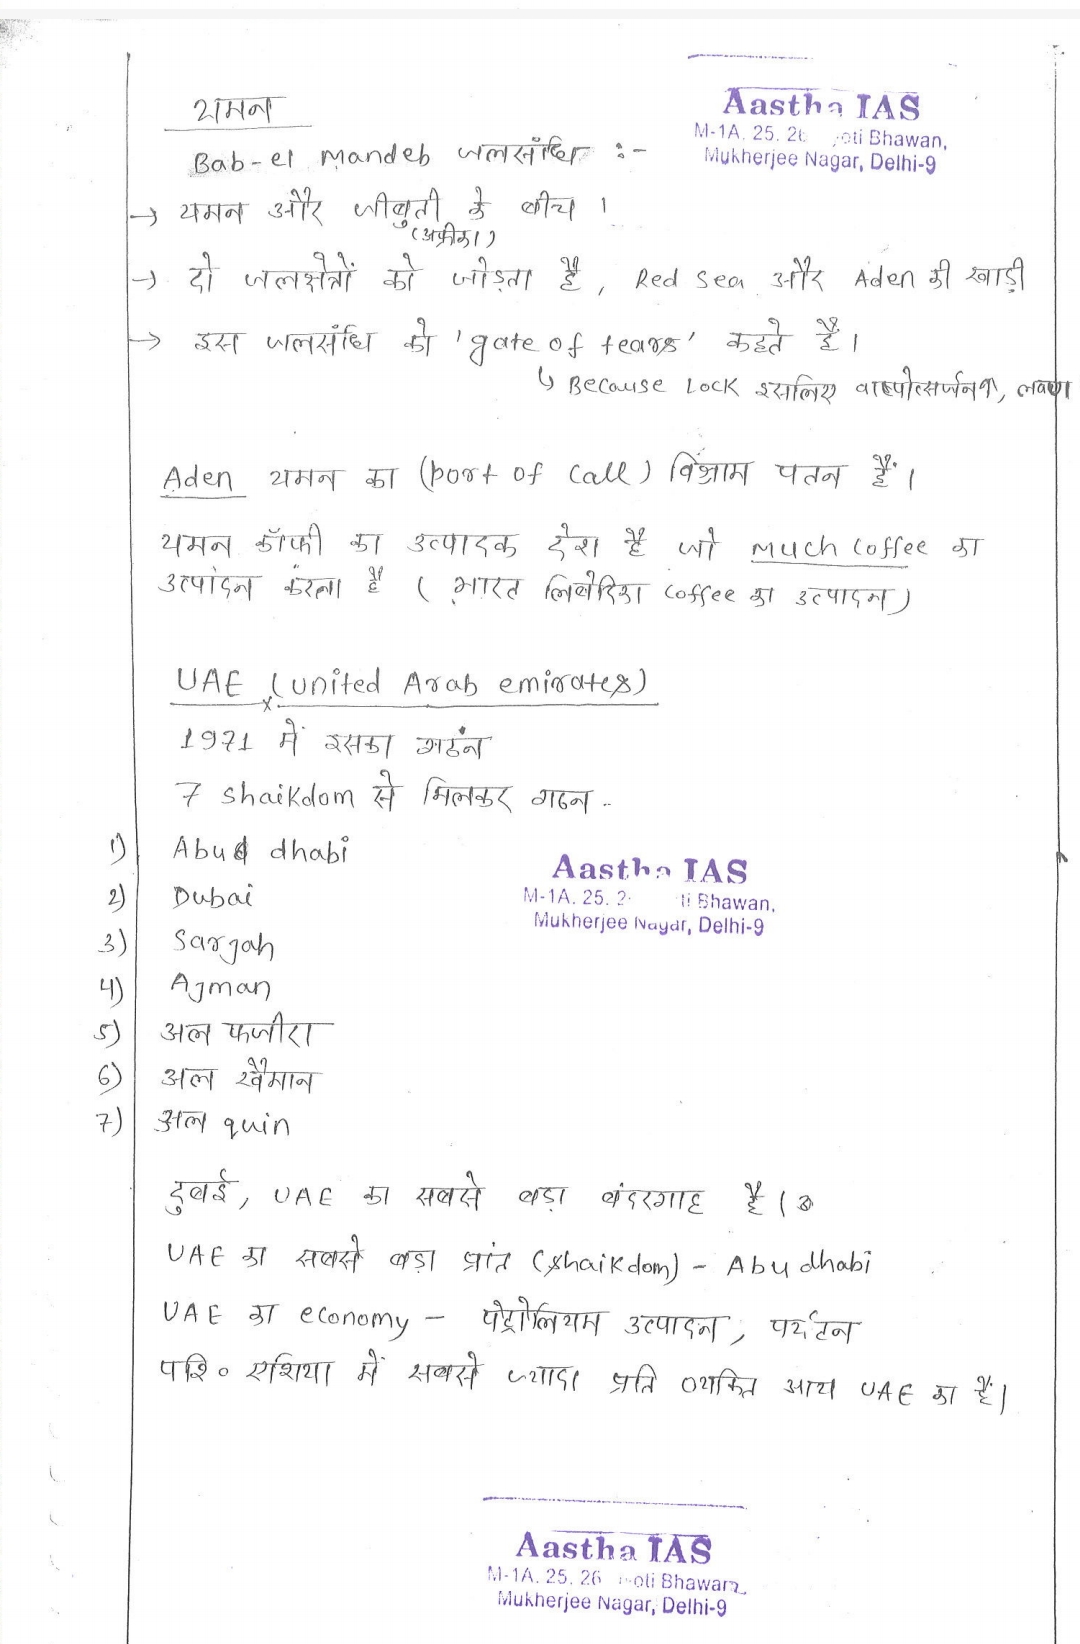 Aastha IAS
M-1A, 25, 26 oti Bhawan,
Mukherjee Nagar, Delhi-9
यमन
Bab-el Mandeb जलसंधि :-
→ यमन और जीबुती के बीच ।
(अफ्रीका)
→ दो जलक्षेत्रों को जोड़ता है, Red sea और Aden की खाड़ी
→ इस जलसंधि को 'gate of tears' कहते हैं।
↳ Because Lock इसलिए वाष्पोत्सर्जन, लवण
Aden यमन का (port of call) विश्राम पतन हैं।
यमन कॉफी का उत्पादक देश है जो Much coffee का
उत्पादन करता है ( भारत लिबेरिका coffee का उत्पादन)
UAE (united Arab emirates)
1971 में इसका गठन
7 shaikdom से मिलकर गठन..
1) Abu dhabi
2) Dubai
3) Sarjah
4) Ajman
5) अल फजीरा
6) अल खैमान
7) अल quin
Aastha IAS
M-1A, 25, 2 ti Bhawan,
Mukherjee Nagar, Delhi-9
दुबई, UAE का सबसे बड़ा बंदरगाह है।
UAE का सबसे बड़ा प्रांत (shaikdom) - Abu dhabi
UAE का economy - पेट्रोलियम उत्पादन, पर्यटन
पश्चि० एशिया में सबसे ज्यादा प्रति व्यक्ति आय UAE का हैं।
Aastha IAS
M-1A, 25, 26 oti Bhawan,
Mukherjee Nagar, Delhi-9